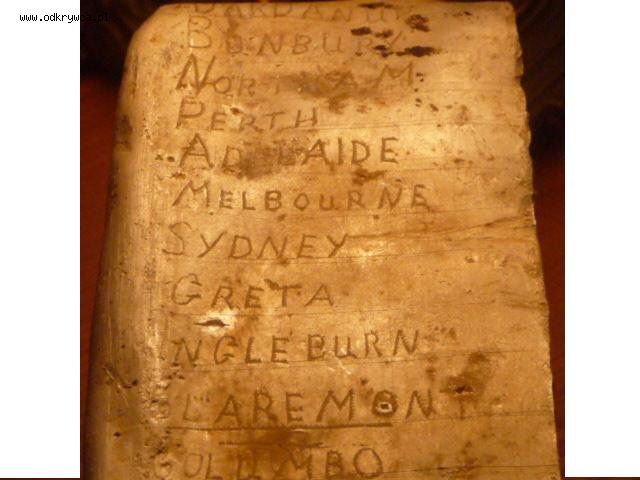 www.odkrywca.pl
DARDANUP
BUNBURY
NORTHAM
PERTH
ADELAIDE
MELBOURNE
SYDNEY
GRETA
INGLEBURN
CLAREMONT
COLOMBO